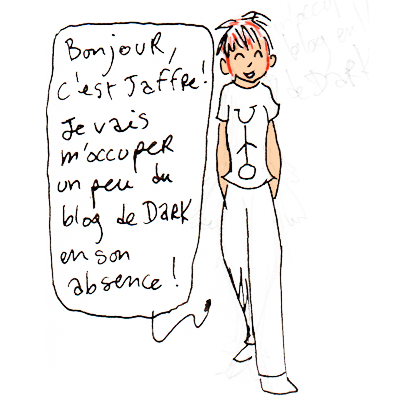 Bonjour,
c'est Jaffre!
Je vais
m'occuper
un peu du
blog de DARK
en son
absence!